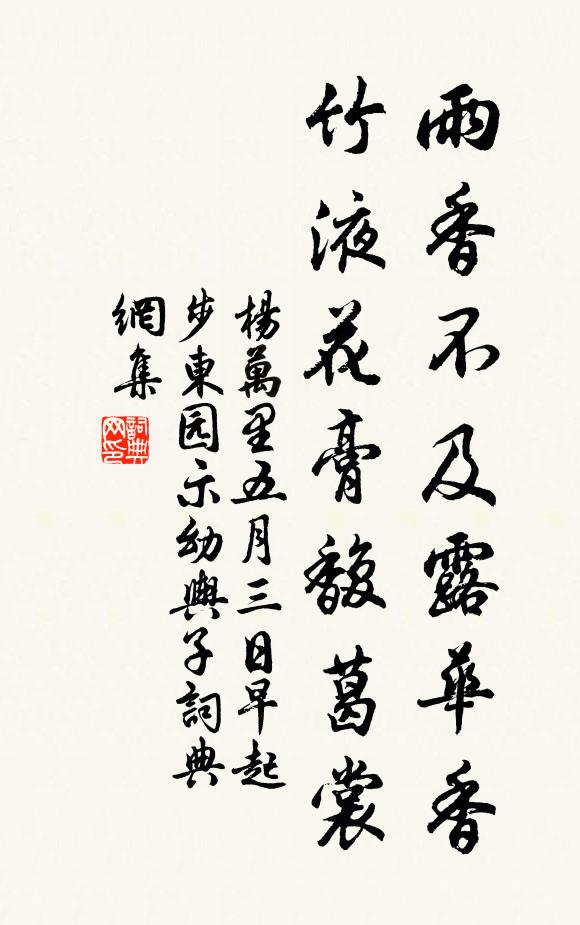 雨香不及露華香
竹液花膏馥葛裳
楊萬里五月三日早起
步東园示幼輿子詞典
網集
詞典
网印